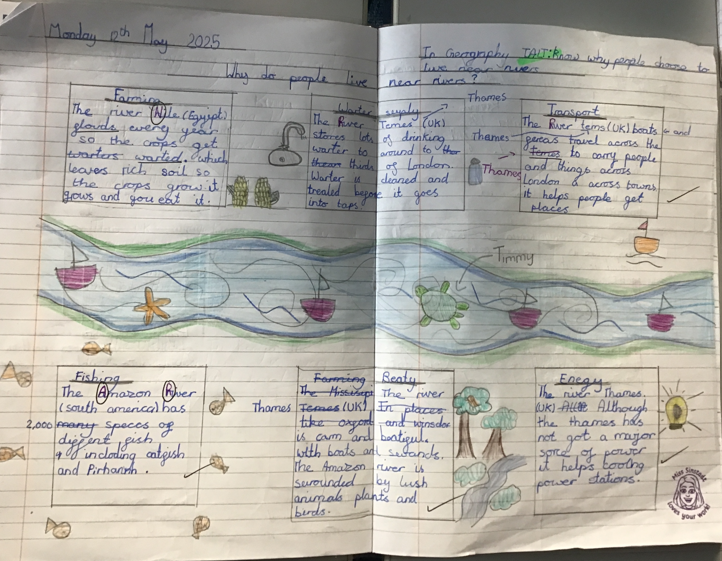 Monday 12th May 2025
In Geography TAIJ: Know why people choose to
live near rivers
Why do people live near rivers?
Farming
The river Nile (Egypt)
floods every year
so the crops get
warters warted. which
leaves rich soil so
the crops grow it
grows and you eat it.
Warter supply
The River Temes (UK)
stores lots of drinking
warter to around to
thirds of London.
Warter is cleaned and
treated before it goes
into taps
Thames
Thames
Thames
Transport
The River Tems (UK) boats and
fereas travel across the
Temes to carry people
and things across
London & across towns
it helps people get
places
Timmy
Fishing
The Amazon River
(south america) has
2,000 many speces of
diffent fish
including catfish
and Pirhannh.
Farming Beaty
The Missisipi The river
Thames Temes (UK) In places
like oxford and winsdor
is carm and beatiful.
with boats and swands.
The Amazon river is
surounded by lush
animals plants and
birds.
Enegy
The river Thames.
(UK) Although
the thames has
not got a major
sorce of power
it helps
power stations.
Miss
loves your work!